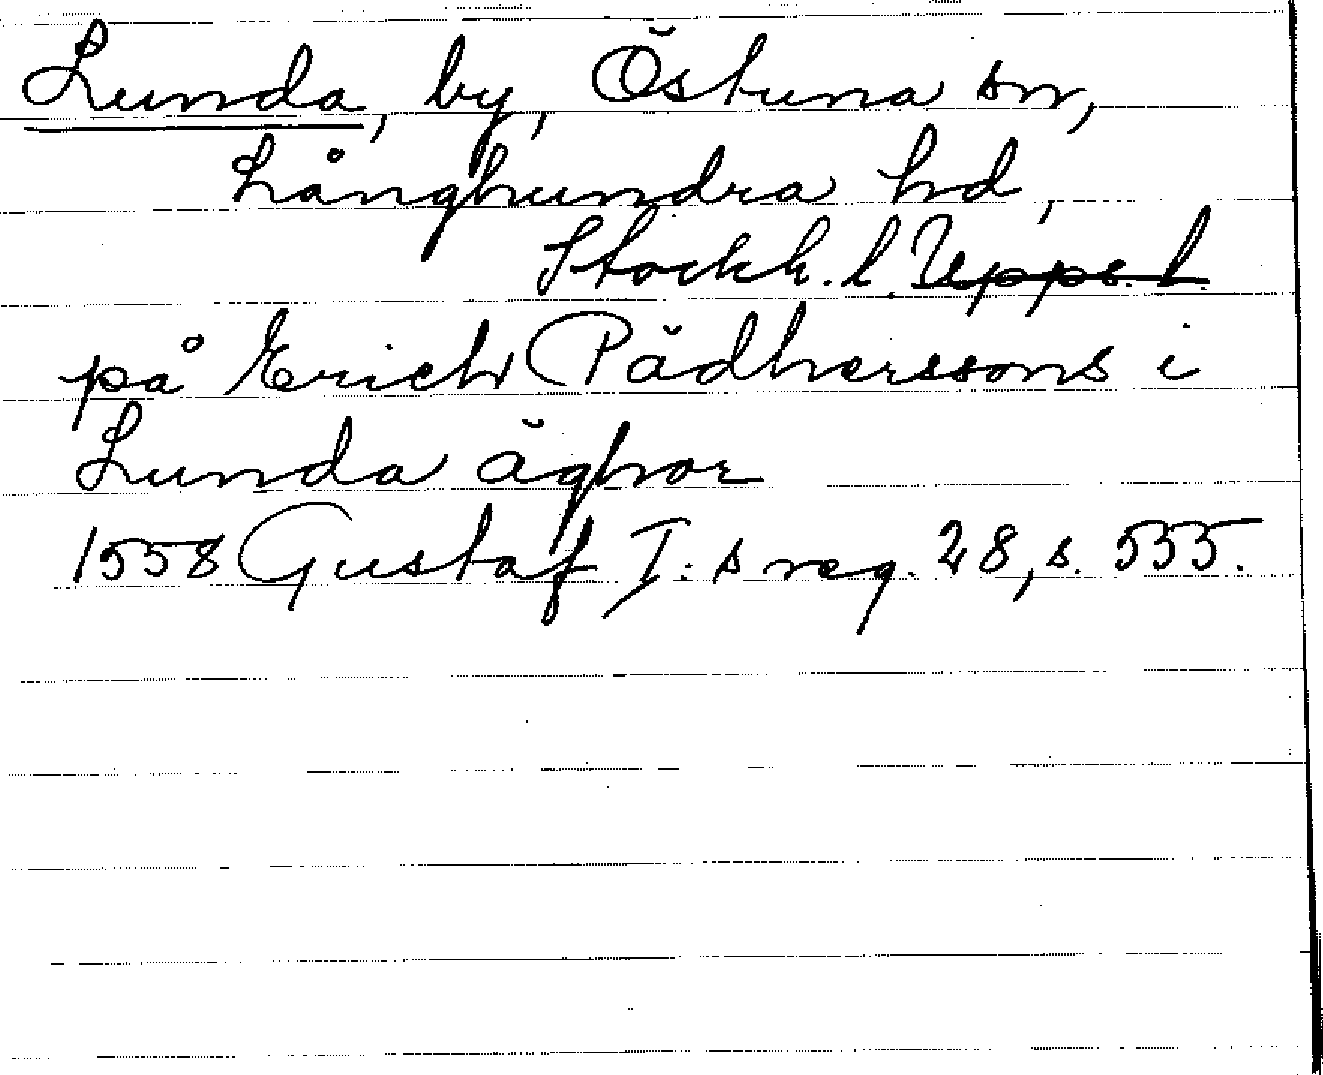 Lunda, by, Östuna sn,
Långhundra hd,
Stockh. l. Upps. l.
på Erich Pädherssons i
Lunda äghor
1558 Gustaf I:s reg. 28, s. 555.